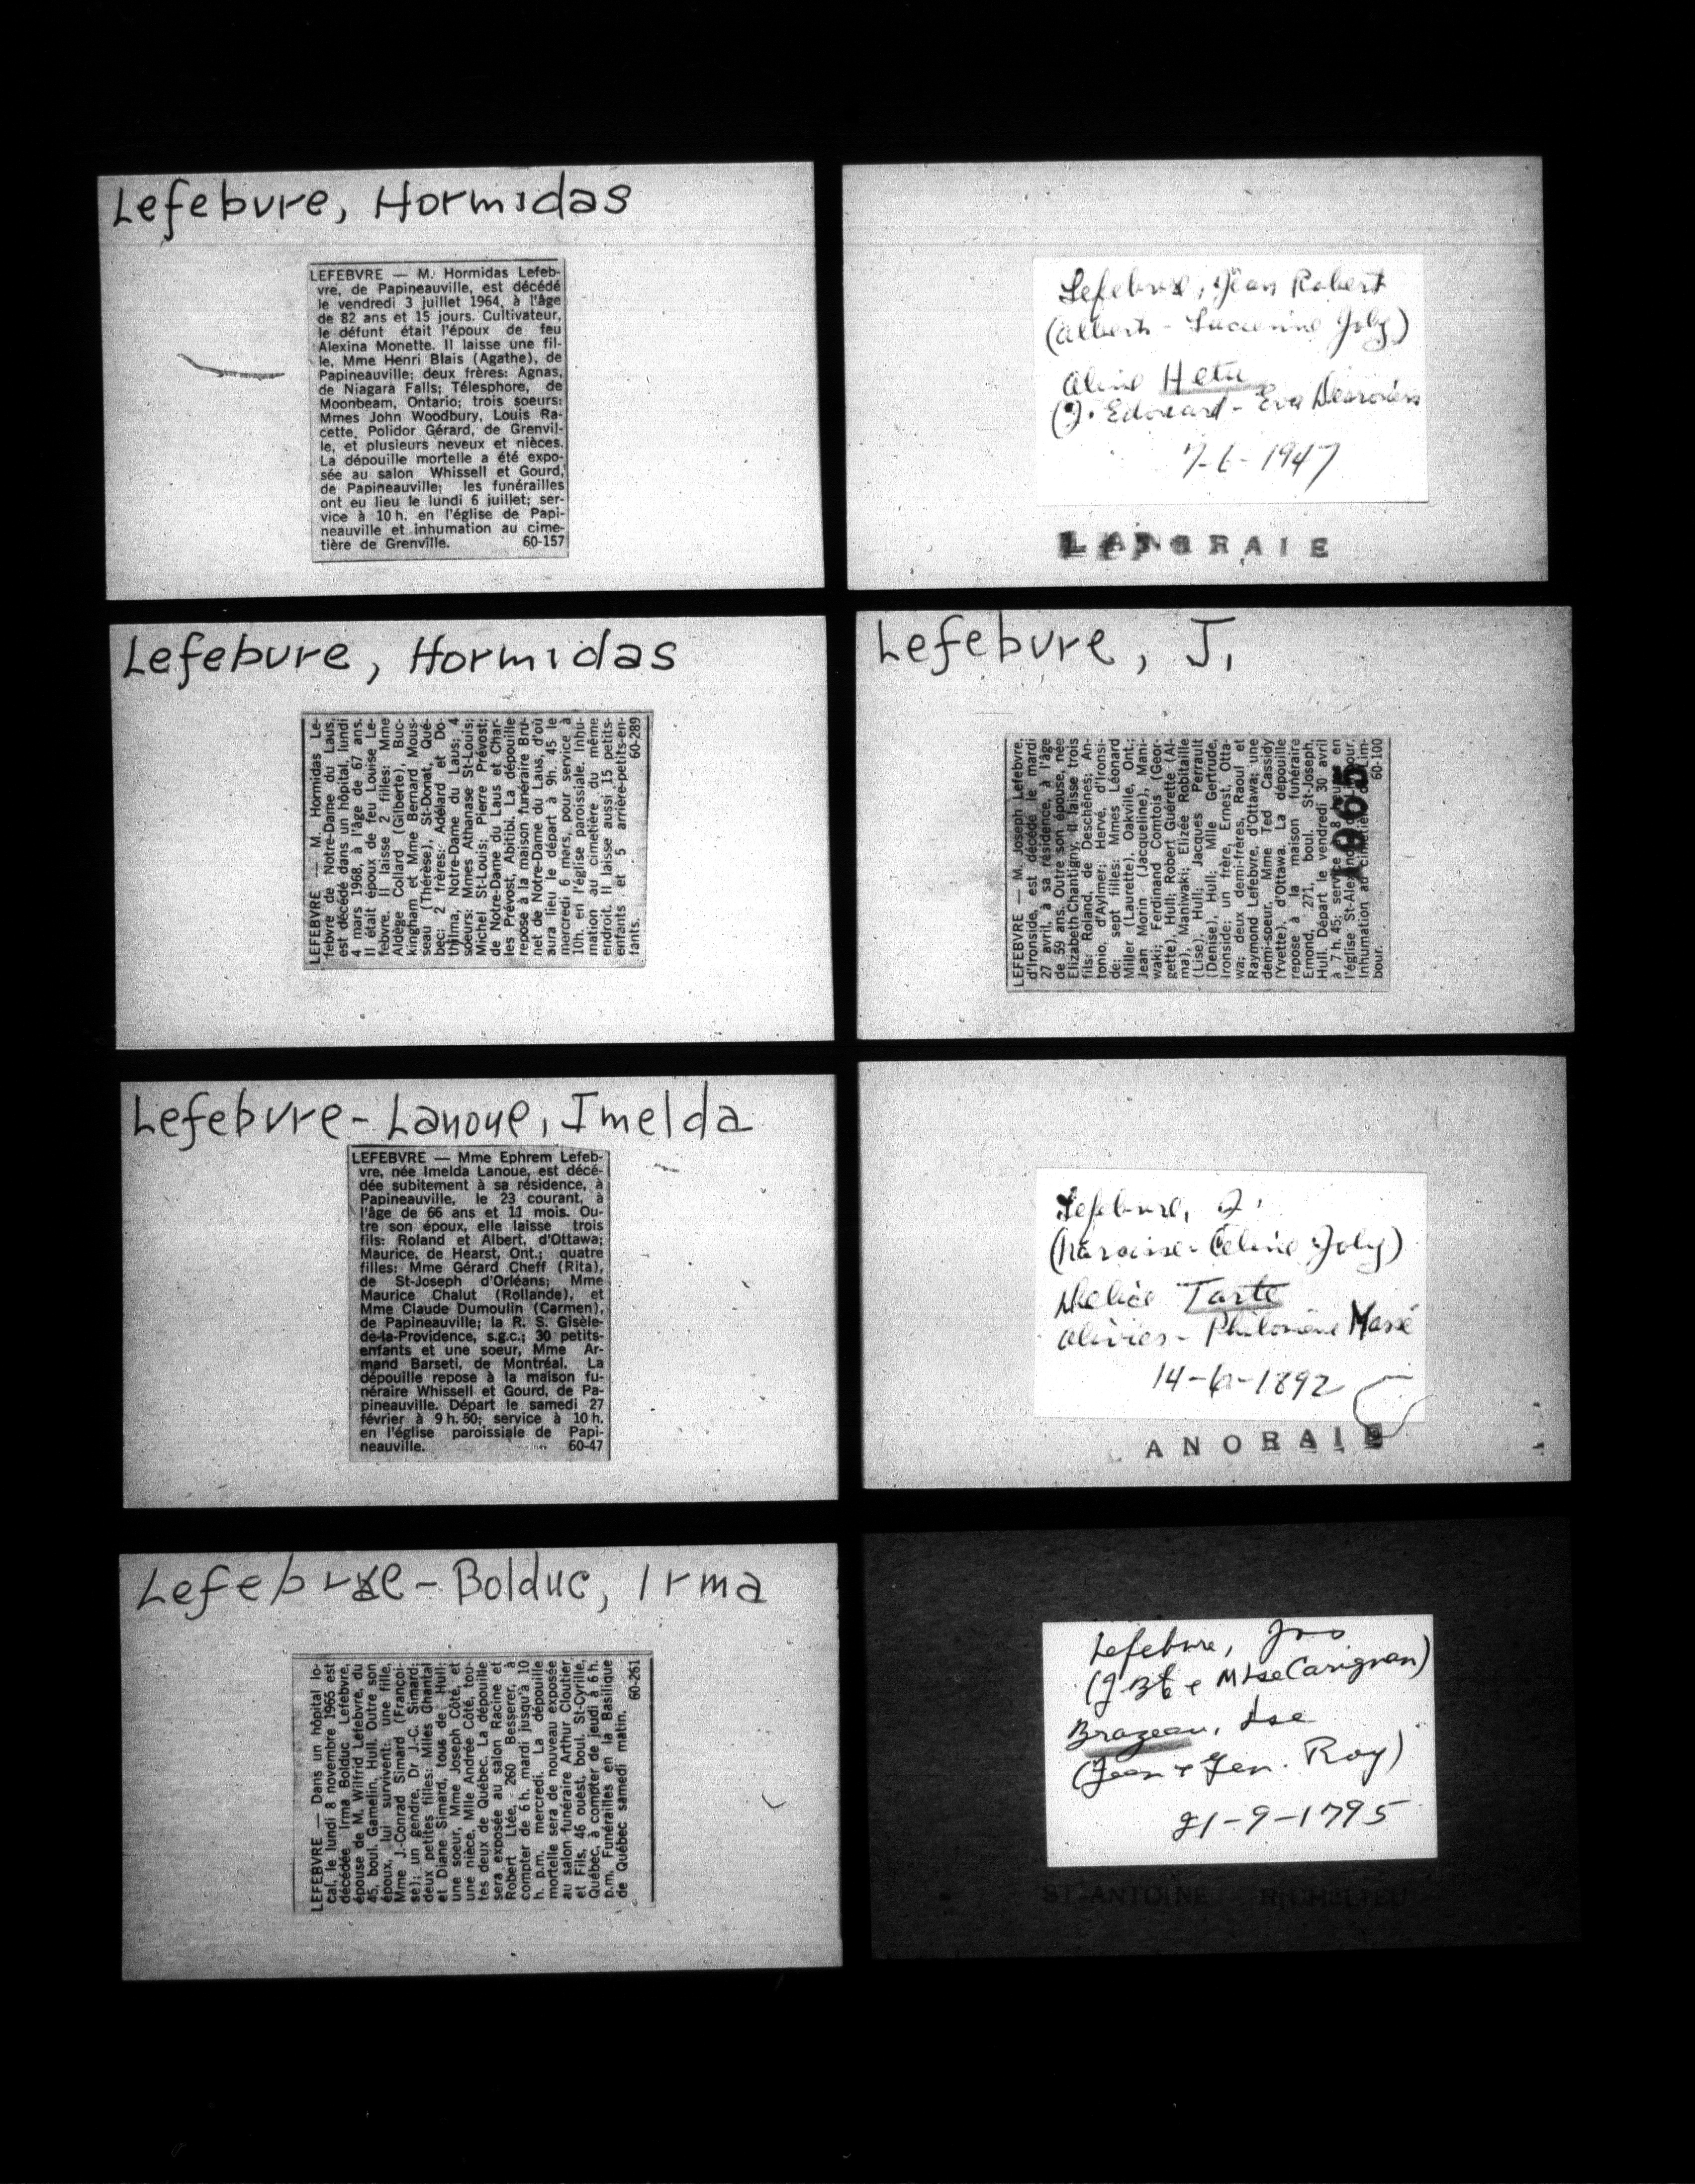 Lefebvre, Hormidas
LEFEBVRE — M. Hormidas Lefeb-
vre, de Papineauville, est décédé
le vendredi 3 juillet 1964, à l'âge
de 82 ans et 15 jours. Cultivateur,
le défunt était l'époux de feu
Alexina Monette. Il laisse une fil-
le, Mme Henri Blais (Agathe), de
Papineauville; deux frères: Agnas,
de Niagara Falls; Télesphore, de
Moonbeam, Ontario; trois soeurs:
Mmes John Woodbury, Louis Ra-
cette, Polidor Gérard, de Grenvil-
le, et plusieurs neveux et nièces.
La dépouille mortelle a été expo-
sée au salon Whissell et Gourd,
de Papineauville; les funérailles
ont eu lieu le lundi 6 juillet; ser-
vice à 10 h. en l'église de Papi-
neauville et inhumation au cime-
tière de Grenville. 60-157
Lefebvre, Jean Robert
(Albert - Lucienne Joly)
Aline Hetu
(J. Edouard - Eva Desrosiers
7-6-1947
LANORAIE
Lefebvre, Hormidas
LEFEBVRE — M. Hormidas Le-
febvre de Notre-Dame du Laus,
est décédé dans un hôpital, lundi
4 mars 1968, à l'âge de 67 ans.
Il était époux de feu Louise Le-
febvre. Il laisse 2 filles: Mme
Aldège Collard (Gilberte), Buc-
kingham et Mme Bernard Mous-
seau (Thérèse), St-Donat, Qué-
bec: 2 frères: Adélard et Do-
thilma, Notre-Dame du Laus; 4
soeurs: Mmes Athanase St-Louis;
Michel St-Louis; Pierre Prévost;
de Notre-Dame du Laus et Char-
les Prévost, Abitibi. La dépouille
repose à la maison funéraire Bru-
net de Notre-Dame du Laus, d'où
aura lieu le départ à 9h. 45 le
mercredi 6 mars, pour service à
10h. en l'église paroissiale. Inhu-
mation au cimetière du même
endroit. Il laisse aussi 15 petits-
enfants et 5 arrière-petits-en-
fants. 60-289
Lefebvre, J.
LEFEBVRE — M. Joseph Lefebvre,
d'Ironside, est décédé le mardi
27 avril, à sa résidence, à l'âge
de 59 ans. Outre son épouse, née
Elizabeth Chantigny, il laisse trois
fils: Roland, de Deschênes; An-
tonio, d'Aylmer; Hervé, d'Ironsi-
de; sept filles: Mmes Léonard
Miller (Laurette), Oakville, Ont.;
Jean Morin (Jacqueline), Mani-
waki; Ferdinand Comtois (Geor-
gette), Hull; Robert Guérette (Al-
ma), Maniwaki; Elizée Robitaille
(Lise), Hull; Jacques Perrault
(Denise), Hull; Mlle Gertrude,
Ironside; un frère, Ernest, Otta-
wa; deux demi-frères, Raoul et
Raymond Lefebvre, d'Ottawa; une
demi-soeur, Mme Ted Cassidy
(Yvette), d'Ottawa. La dépouille
repose à la maison funéraire
Emond, 271, boul. St-Joseph,
Hull. Départ le vendredi 30 avril
à 7 h. 45; service 8 heures en
l'église St-Alexandre de Limbour.
Inhumation au cimetière de Lim-
bour. 60-100
1965
Lefebvre-Lanoue, Imelda
LEFEBVRE — Mme Ephrem Lefeb-
vre, née Imelda Lanoue, est décé-
dée subitement à sa résidence, à
Papineauville, le 23 courant, à
l'âge de 66 ans et 11 mois. Ou-
tre son époux, elle laisse trois
fils: Roland et Albert, d'Ottawa;
Maurice, de Hearst, Ont.; quatre
filles: Mme Gérard Cheff (Rita),
de St-Joseph d'Orléans; Mme
Maurice Chalut (Rollande), et
Mme Claude Dumoulin (Carmen),
de Papineauville; la R. S. Gisèle-
de-la-Providence, s.g.c.; 30 petits-
enfants et une soeur, Mme Ar-
mand Barseti, de Montréal. La
dépouille repose à la maison fu-
néraire Whissell et Gourd, de Pa-
pineauville. Départ le samedi 27
février à 9 h. 50; service à 10 h.
en l'église paroissiale de Papi-
neauville. 60-47
Lefebvre, J.
(Narcisse - Celine Joly)
Tarte
Olivier - Philomène Massé
14-6-1892
ANORAIE
Lefebvre-Bolduc, Irma
LEFEBVRE — Dans un hôpital lo-
cal, le lundi 8 novembre 1965 est
décédée Irma Bolduc Lefebvre,
épouse de M. Wilfrid Lefebvre, du
45, boul. Gamelin, Hull. Outre son
époux, lui survivent: une fille,
Mme J.-Conrad Simard (Françoi-
se); un gendre, Dr J.-C. Simard;
deux petites filles: Mlles Chantal
et Diane Simard, tous de Hull;
une soeur, Mme Joseph Côté, et
une nièce, Mlle Andrée Côté, tou-
tes deux de Québec. La dépouille
sera exposée au salon Racine et
Robert Ltée, 260 Besserer, à
compter de 6 h. mardi jusqu'à 10
h. p.m. mercredi. La dépouille
mortelle sera de nouveau exposée
au salon funéraire Arthur Cloutier
et Fils, 46 ouest, boul. St-Cyrille,
Québec, à compter de jeudi à 6 h.
p.m. Funérailles en la Basilique
de Québec samedi matin.
60-261
Lefebvre, Jos
(J. Bte & M Lse Carignan)
Brazeau, Lse
(Jean & Gen. Roy)
21-9-1795
ST ANTOINE RICHELIEU